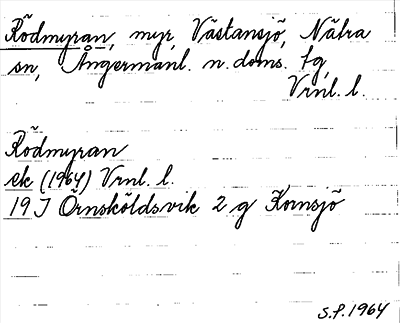 Rödmyran, myr, Västansjö, Nätra
sn, Ångermanl. n. doms. fg,
Vrnl. l.
Rödmyran
ek (1964) Vrnl. l.
19 J Örnsköldsvik 2 g Kornsjö
S.P. 1964